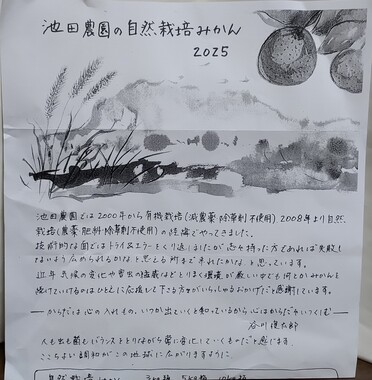 池田農園の自然栽培みかん
2025
池田農園では2000年から有機栽培(減農薬 除草剤不使用) 2008年より自然
栽培(農薬 肥料 除草剤不使用)の経緯でやってきました。
技術的な面ではトライ&エラーをくり返しましたが志を持った方であれば失敗し
ないよう広められるかなと思える所まで来れたかなと思っています。
近年 気候の変化や害虫の猛威などとりまく環境が厳しい中でも何とかみかんを
続けていけるのはひとえに応援して下さる方々がいらっしゃるおかげだと感謝しています。
からだは心の入れもの、いつか出ていくと知っているから 心はからだをいつくしむ
谷川俊太郎
人も虫も菌もバランスをとりながら常に変化していくものだと感じます。
ここちよい調和がこの地球に広がりますように
自然栽培 3kg 5kg 10kg